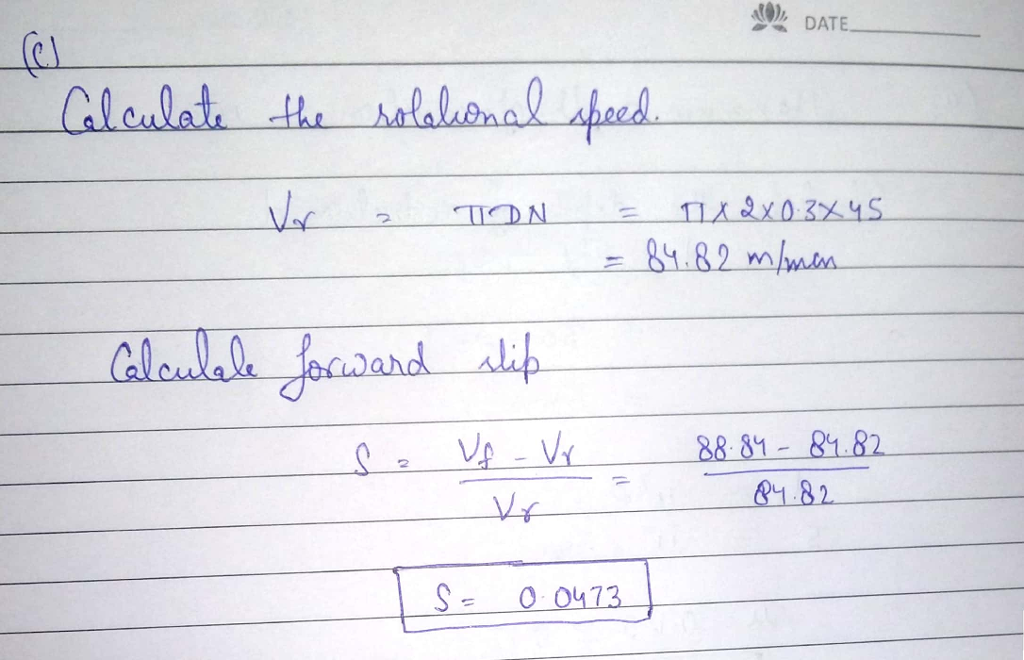 DATE
(C)
Calculate the rotational speed.
Vr = πDN = π x 2x0.3x45
= 84.82 m/min
Calculate forward slip
S = Vf - Vr / Vr = 88.84 - 84.82 / 84.82
S = 0.0473